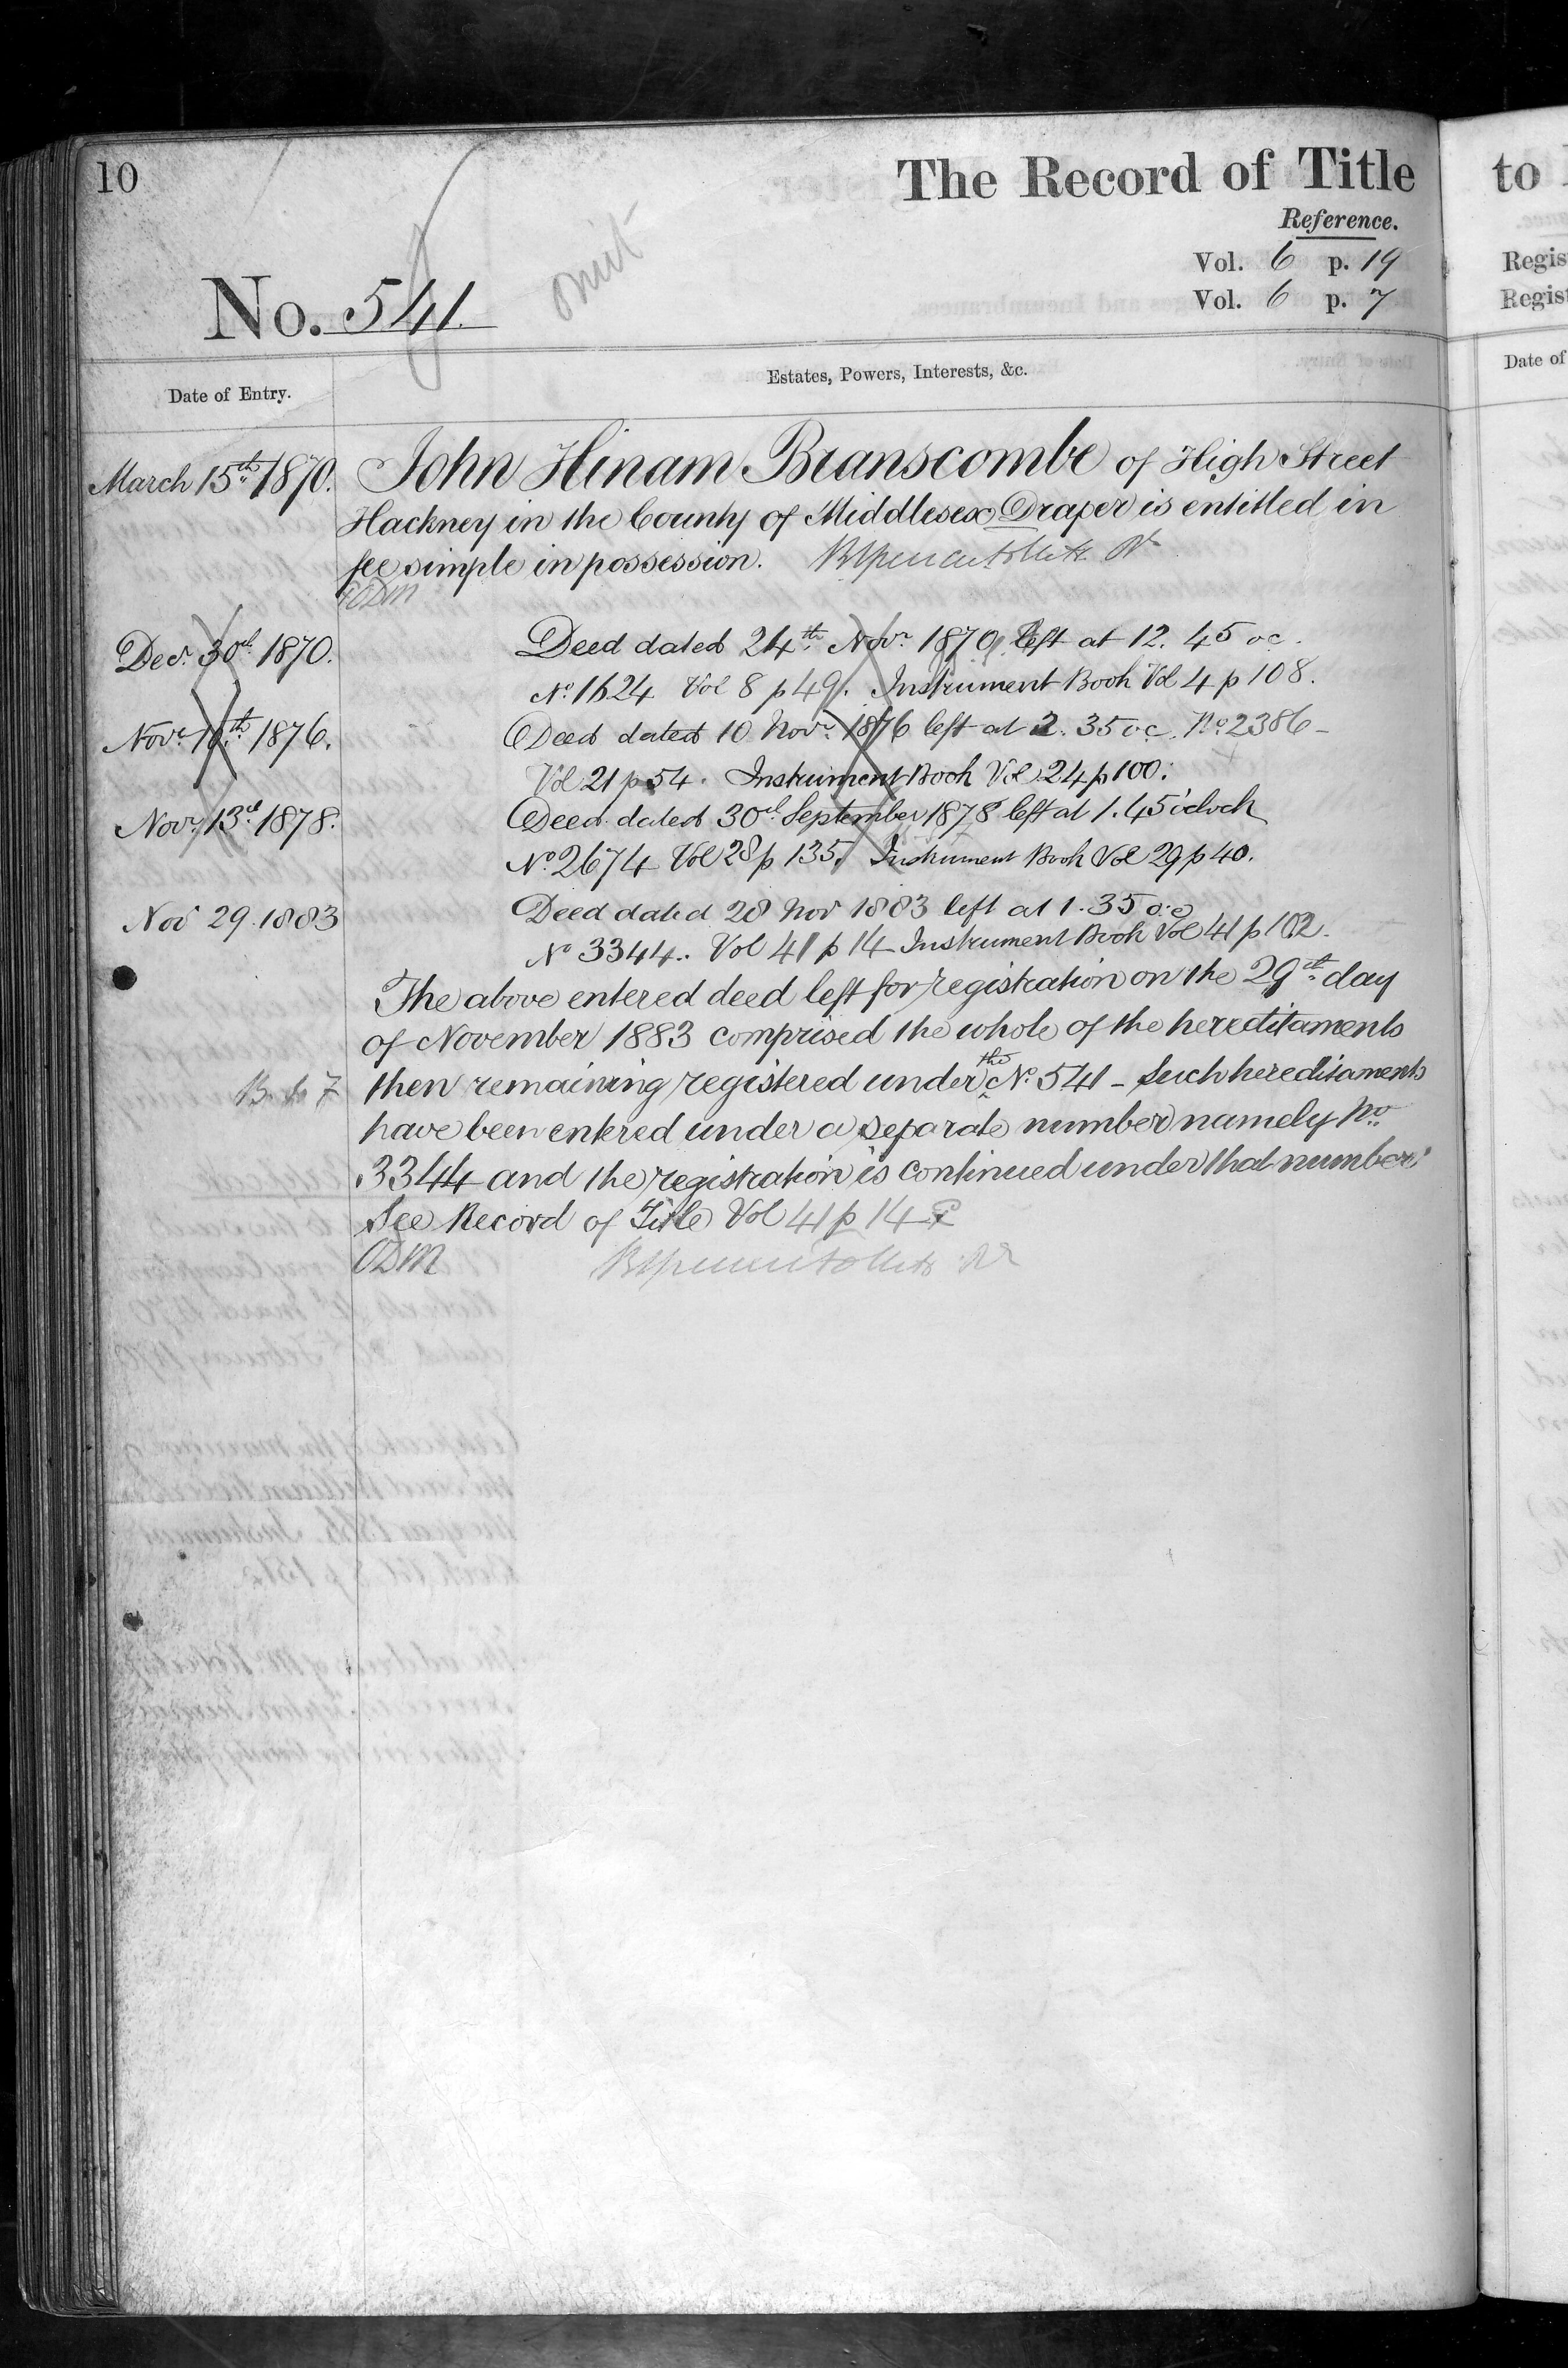 10
The Record of Title
Reference.
Vol. 6 p. 19
Vol. 6 p. 7
omit
No. 541.
Date of Entry.
Estates, Powers, Interests, &c.
March 15th 1870. John Hinam Branscombe of High Street
Hackney in the County of Middlesex Draper is entitled in
fee simple in possession.
ODM
Decr. 30th 1870. Deed dated 24th Novr. 1870 left at 12. 45 oc.
No. 1624 Vol 8 p 49. Instrument Book Vol 4 p 108.
Novr. 10th 1876. Deed dated 10 Novr. 1876 left at 2. 35 oc. No. 2386 -
Vol 21 p 54. Instrument Book Vol 24 p 100.
Novr. 13th 1878. Deed dated 30th September 1878 left at 1. 45 o'clock
No. 2674 Vol 28 p 135. Instrument Book Vol 29 p 40.
Nov 29. 1883 Deed dated 28 Nov 1883 left at 1. 35 o.c
No 3344. Vol 41 p 14 Instrument Book Vol 41 p 102.
The above entered deed left for registration on the 29th day
of November 1883 comprised the whole of the hereditaments
then remaining registered under the No. 541 - Such hereditaments
have been entered under a separate number namely No.
3344 and the registration is continued under that number.
See Record of Title Vol 41 p 14
ODM
to
Regis
Regist
Date of